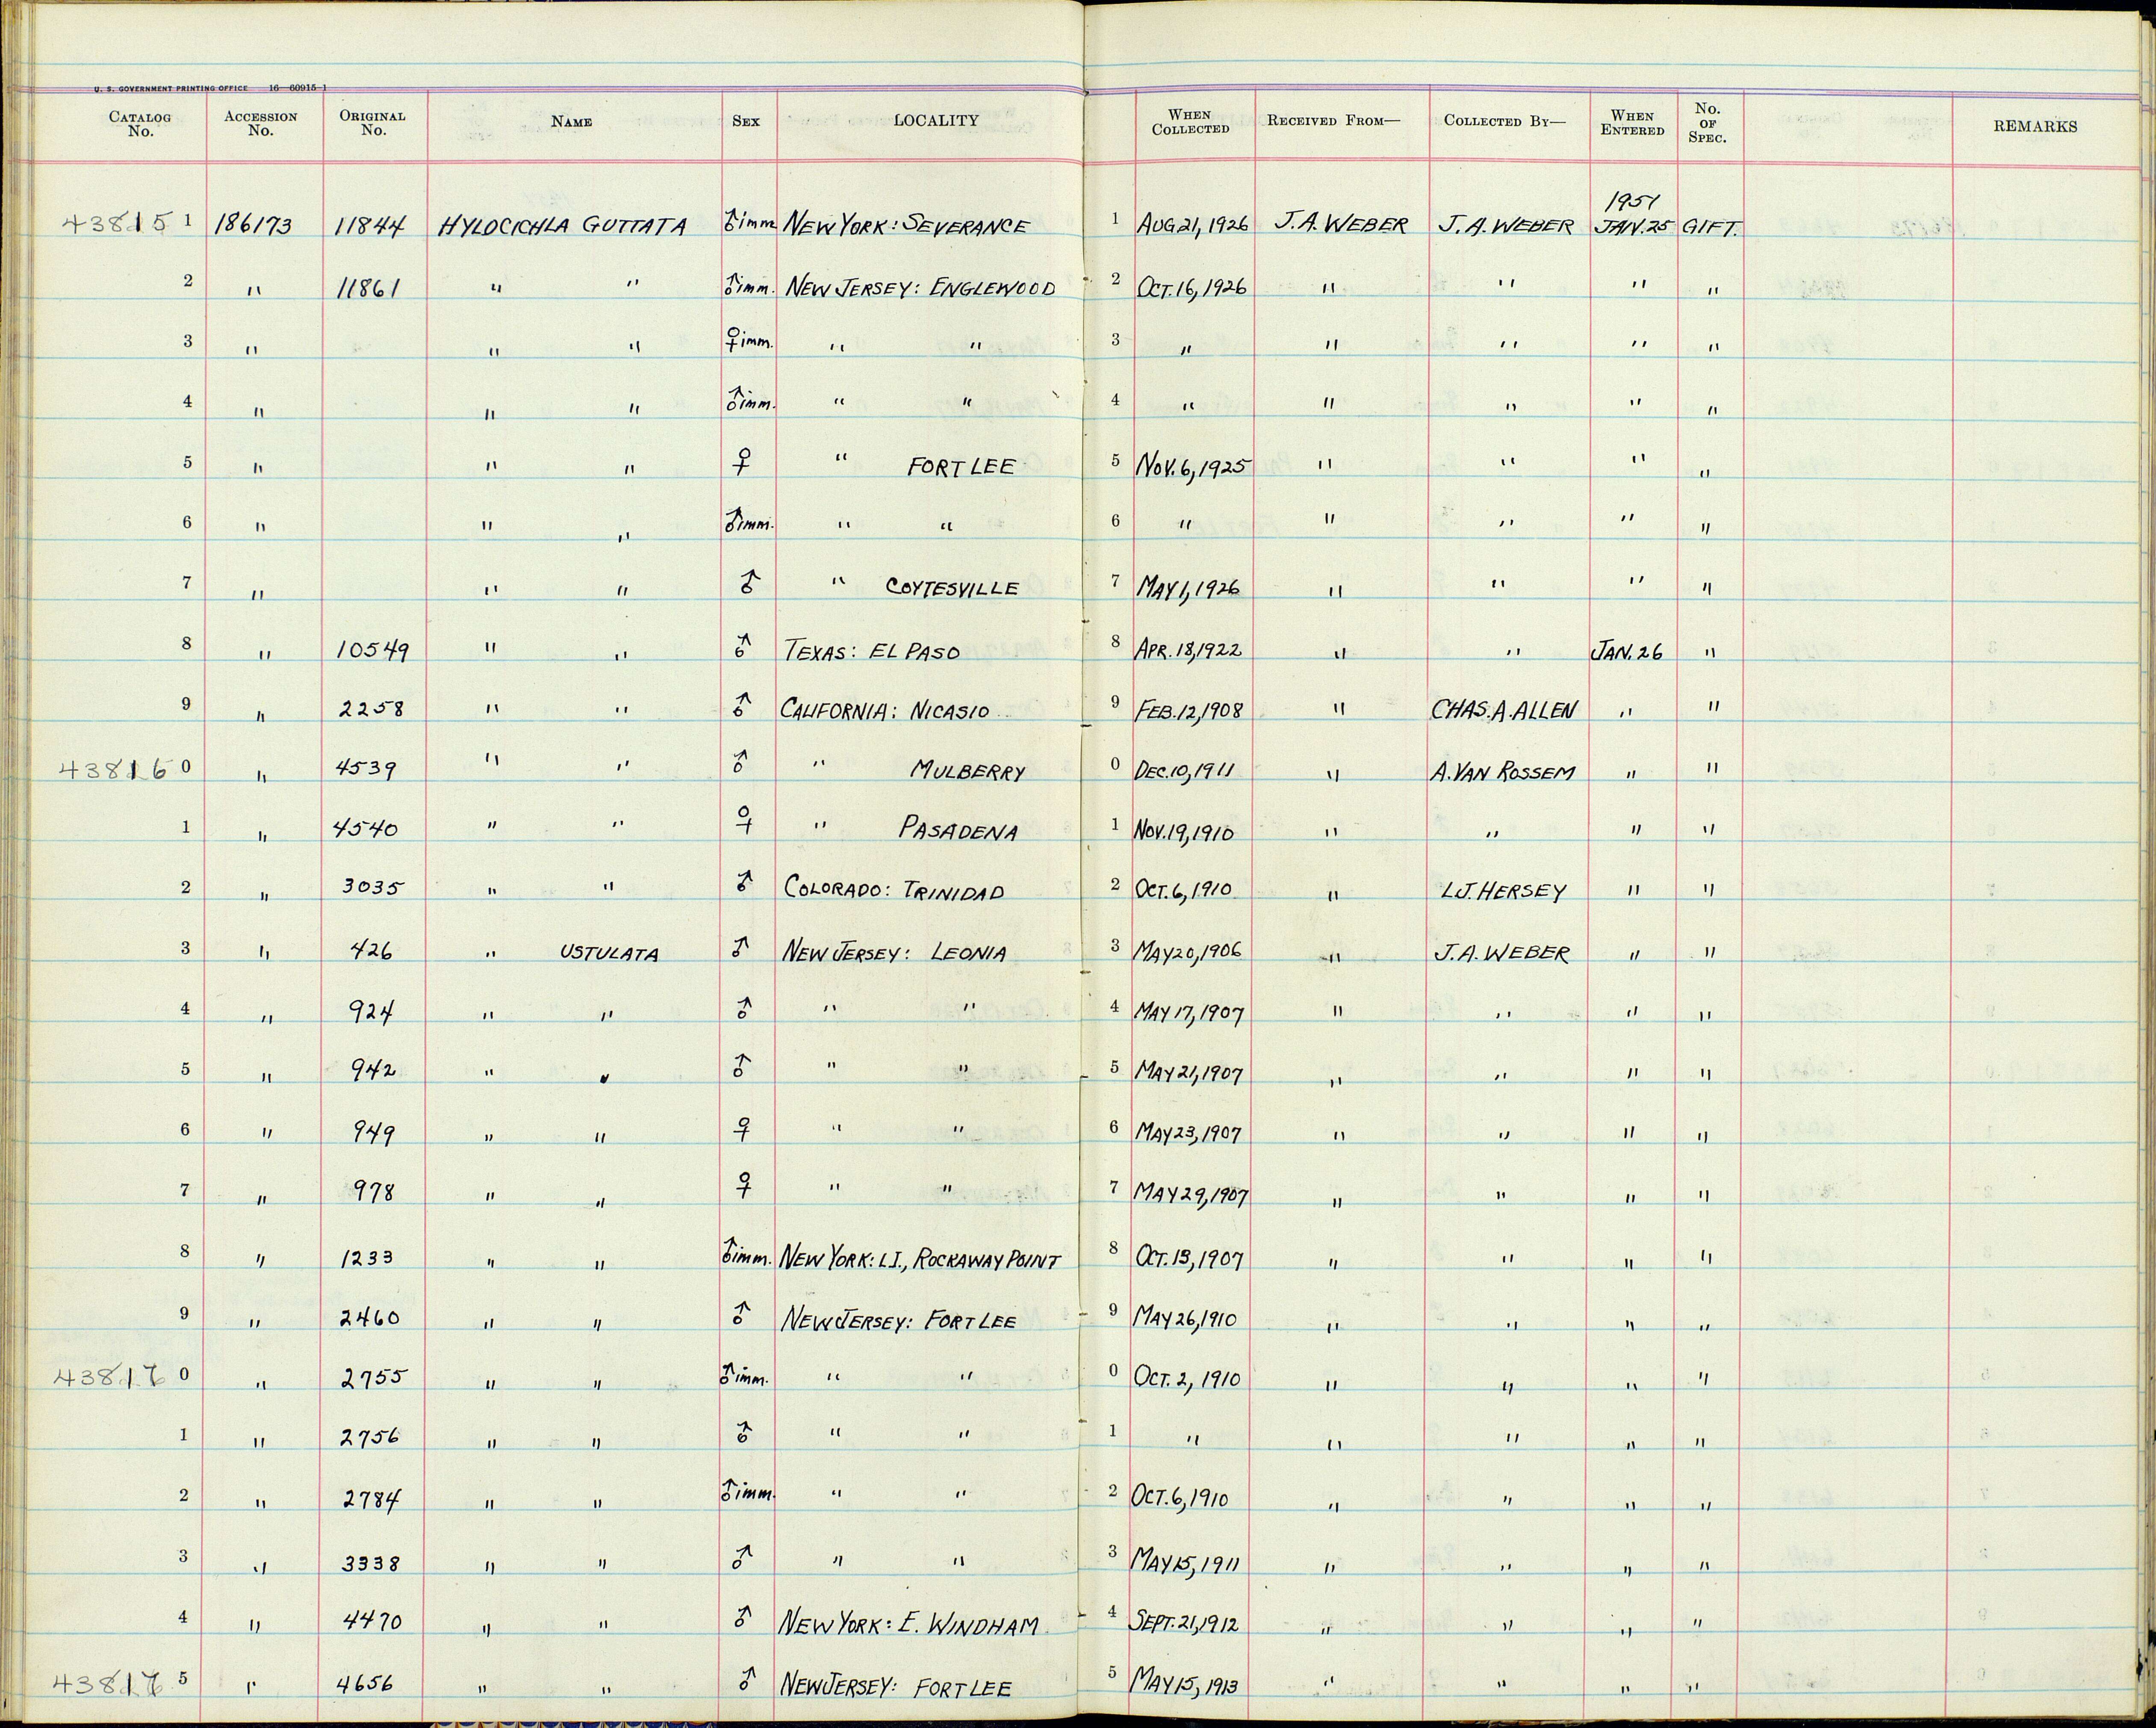 U. S. GOVERNMENT PRINTING OFFICE 16—60915-1
CATALOG No. ACCESSION No. ORIGINAL No. NAME SEX LOCALITY WHEN COLLECTED RECEIVED FROM— COLLECTED BY— WHEN ENTERED No. OF SPEC. REMARKS
1951
43815 1 186173 11844 HYLOCICHLA GUTTATA ♂imm NEW YORK: SEVERANCE 1 AUG 21, 1926 J.A. WEBER J.A. WEBER JAN. 25 GIFT.
2 " 11861 " " ♂imm. NEW JERSEY: ENGLEWOOD 2 OCT. 16, 1926 " " " "
3 " " " ♀imm. " " 3 " " " " "
4 " " " ♂imm. " " 4 " " " " "
5 " " " ♀ " FORT LEE 5 NOV. 6, 1925 " " " "
6 " " " ♂imm. " " 6 " " " " "
7 " " " ♂ " COYTESVILLE 7 MAY 1, 1926 " " " "
8 " 10549 " " ♂ TEXAS: EL PASO 8 APR. 18, 1922 " " JAN. 26 "
9 " 2258 " " ♂ CALIFORNIA: NICASIO 9 FEB. 12, 1908 " CHAS. A. ALLEN " "
43816 0 " 4539 " " ♂ " MULBERRY 0 DEC. 10, 1911 " A. VAN ROSSEM " "
1 " 4540 " " ♀ " PASADENA 1 NOV. 19, 1910 " " " "
2 " 3035 " " ♂ COLORADO: TRINIDAD 2 OCT. 6, 1910 " L.J. HERSEY " "
3 " 426 " USTULATA ♂ NEW JERSEY: LEONIA 3 MAY 20, 1906 " J.A. WEBER " "
4 " 924 " " ♂ " " 4 MAY 17, 1907 " " " "
5 " 942 " " ♂ " " 5 MAY 21, 1907 " " " "
6 " 949 " " ♀ " " 6 MAY 23, 1907 " " " "
7 " 978 " " ♀ " " 7 MAY 29, 1907 " " " "
8 " 1233 " " ♂imm. NEW YORK: L.I., ROCKAWAY POINT 8 OCT. 13, 1907 " " " "
9 " 2460 " " ♂ NEW JERSEY: FORT LEE 9 MAY 26, 1910 " " " "
43817 0 " 2755 " " ♂imm. " " 0 OCT. 2, 1910 " " " "
1 " 2756 " " ♂ " " 1 " " " " "
2 " 2784 " " ♂imm. " " 2 OCT. 6, 1910 " " " "
3 " 3338 " " ♂ " " 3 MAY 15, 1911 " " " "
4 " 4470 " " ♂ NEW YORK: E. WINDHAM 4 SEPT. 21, 1912 " " " "
43817 5 " 4656 " " ♂ NEW JERSEY: FORT LEE 5 MAY 15, 1913 " " " "